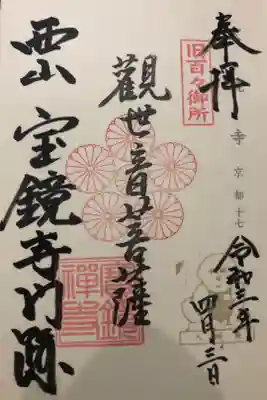 奉拝
旧百々御所
寺
京都十七
令和三年
四月三日
觀世音菩薩
西山
宝鏡寺門跡